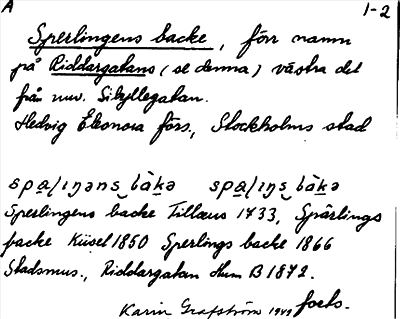 A 1-2
Sperlingens backe, förr namn
på Riddargatans (se denna) västra del
från nuv. Sibyllegatan.
Hedvig Eleonora förs., Stockholms stad
spa̲ɭɩŋəns‿bàk̲ə spa̲ɭɩŋs‿bàk̲ə
Sperlingens backe Tillæus 1733, Spärlings
backe Küsel 1850 Sperlings backe 1866
Stadsmus., Riddargatan Hum B 1872.
Karin Grafström 1949 forts.